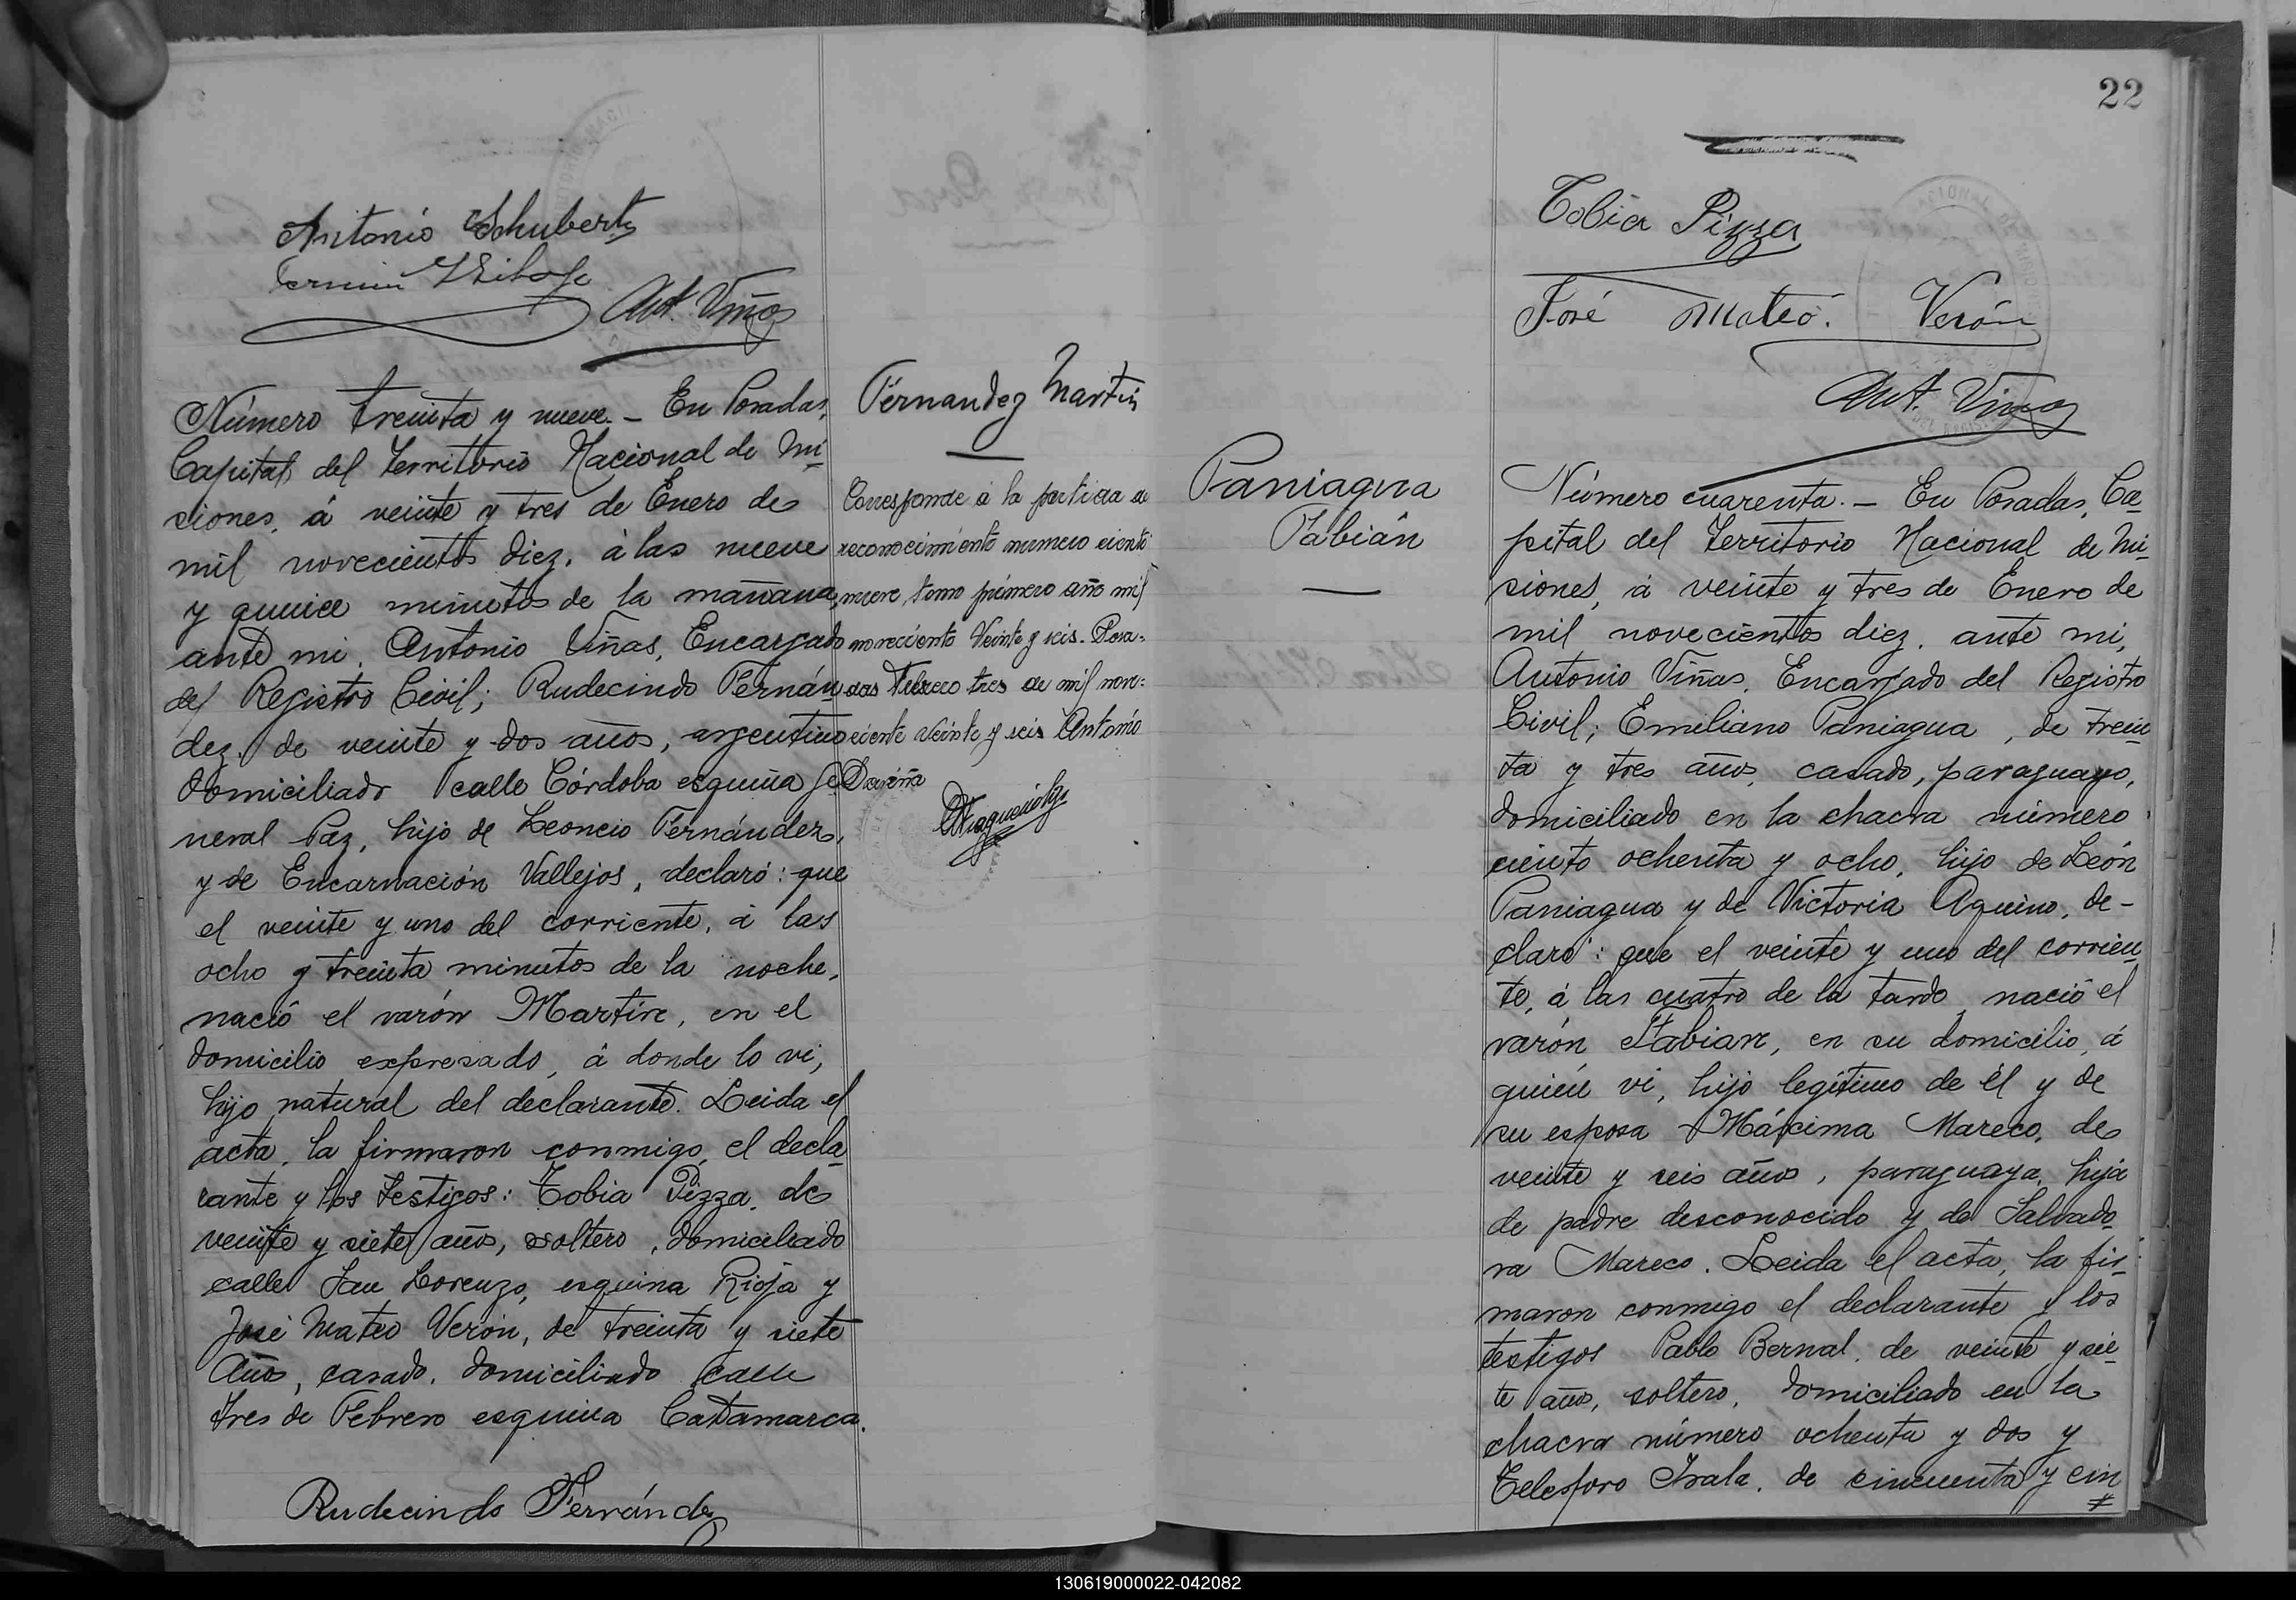 Antonio Schubert
Ant. Viñas
Número treinta y nueve. — En Posadas,
Capital del Territorio Nacional de Mi-
siones, á veinte y tres de Enero de
mil novecientos diez, á las nueve
y quince minutos de la mañana,
ante mi, Antonio Viñas, Encargado
del Registro Civil; Rudecindo Fernán-
dez, de veinte y dos años, argentino
domiciliado calle Córdoba esquina Ge-
neral Paz, hijo de Leoncio Fernández,
y de Encarnación Vallejos, declaró: que
el veinte y uno del corriente, á las
ocho y treinta minutos de la noche,
nació el varón Martín, en el
domicilio expresado, á donde lo ví,
hijo natural del declarante. Leida el
acta, la firmaron conmigo, el decla-
rante y los testigos: Tobia Pizza, de
veinte y siete años, soltero, domiciliado
calle San Lorenzo, esquina Rioja y
José Mateo Verón, de treinta y siete
años, casado, domiciliado calle
Tres de Febrero esquina Catamarca.
Rudecindo Fernández
Fernandez Martin
Corresponde á la partida de
reconocimiento numero ciento
nueve, tomo primero año mil
novecientos Veinte y seis. Posa-
das Febrero tres de mil nove-
ciento veinte y seis Antonio
22
Tobia Pizza
José Mateo Verón
Ant. Viñas
Paniagua
Fabián
Número cuarenta. — En Posadas, Ca-
pital del Territorio Nacional de Mi-
siones, á veinte y tres de Enero de
mil novecientos diez, ante mi,
Antonio Viñas, Encargado del Registro
Civil; Emiliano Paniagua, de trein-
ta y tres años, casado, paraguayo,
domiciliado en la chacra número
ciento ochenta y ocho, hijo de León
Paniagua y de Victoria Aquino, de-
claró: que el veinte y uno del corrien-
te, á las cuatro de la tarde, nació el
varón Fabian, en su domicilio, á
quien ví, hijo legítimo de él y de
su esposa Máxima Mareco, de
veinte y seis años, paraguaya, hija
de padre desconocido y de Salvado-
ra Mareco. Leida el acta, la fir-
maron conmigo el declarante y los
testigos Pablo Bernal, de veinte y sie-
te años, soltero, domiciliado en la
chacra número ochenta y dos y
Telesforo Irala, de cincuenta y cin
130619000022-042082